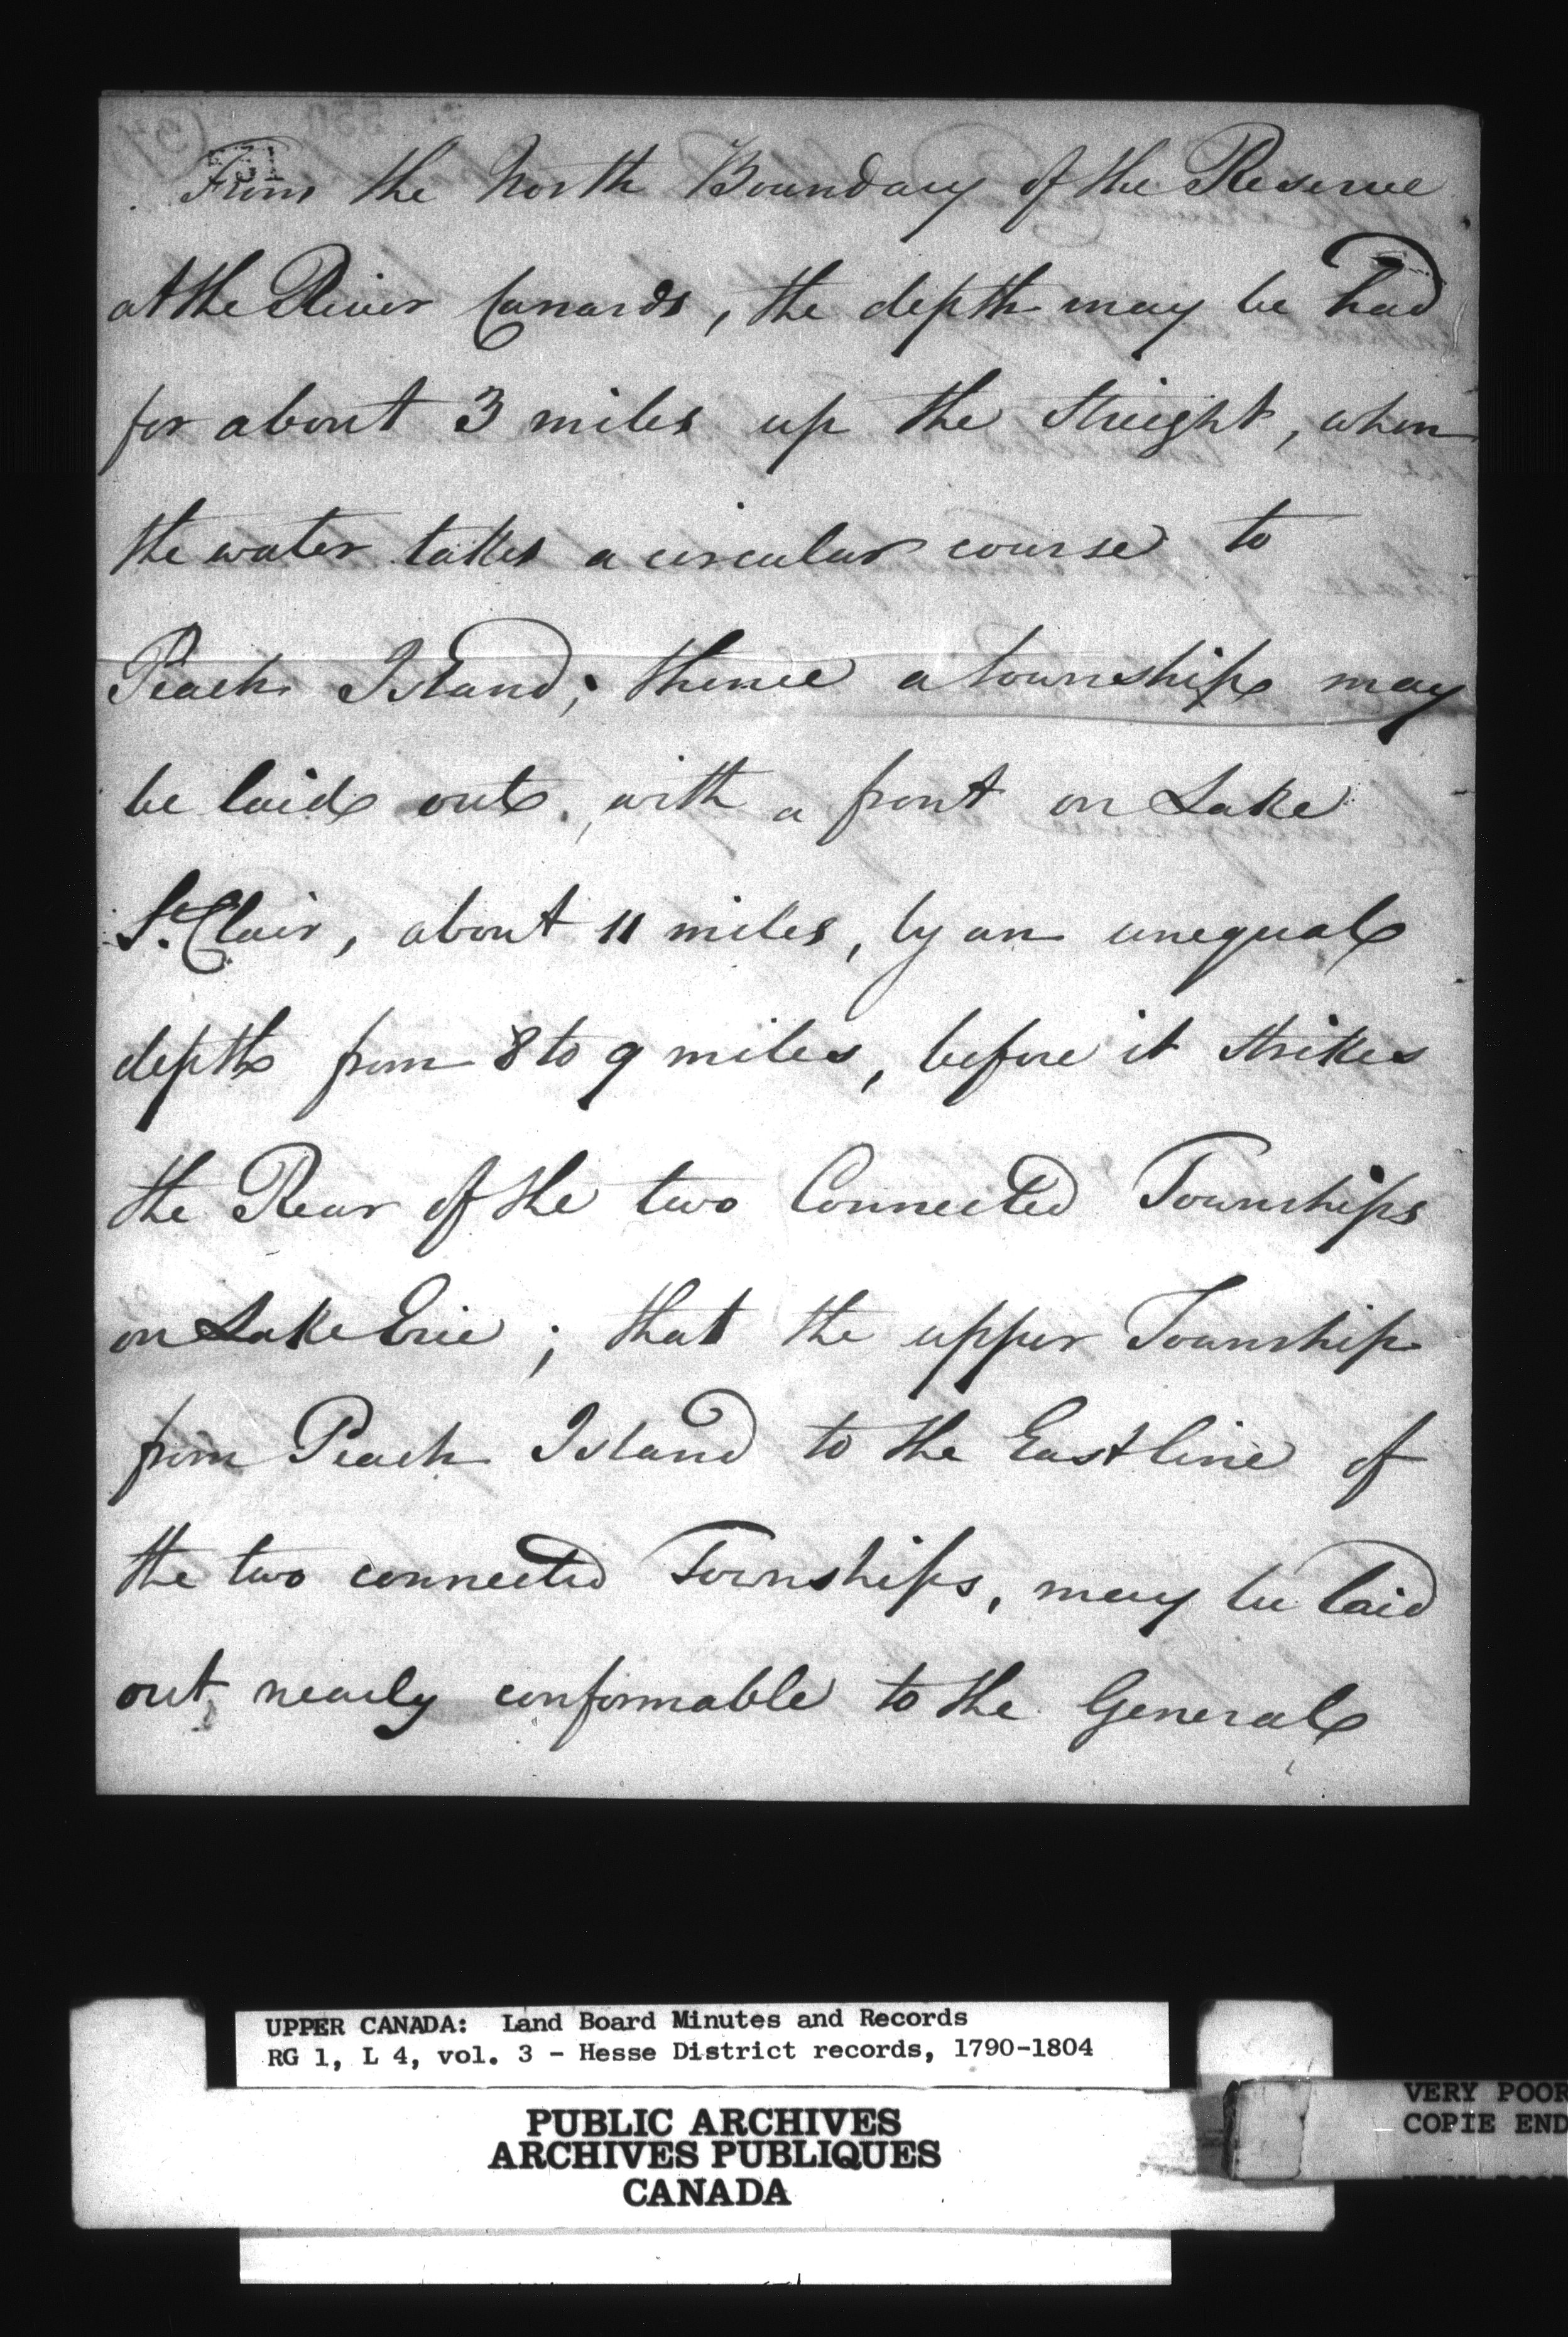 531
From the North Boundary of the Reserve
at the River Canards, the depth may be had
for about 3 miles up the Streight, when
the water takes a circular course to
Peach Island; thence a township may
be laid out, with a front on Lake
St. Clair, about 11 miles, by an unequal
depth from 8 to 9 miles, before it strikes
the Rear of the two Connected Townships
on Lake Erie; that the upper Township
from Peach Island to the East line of
the two connected Townships, may be laid
out nearly conformable to the General
UPPER CANADA: Land Board Minutes and Records
RG 1, L 4, vol. 3 - Hesse District records, 1790-1804
PUBLIC ARCHIVES
ARCHIVES PUBLIQUES
CANADA
VERY POOR
COPIE END